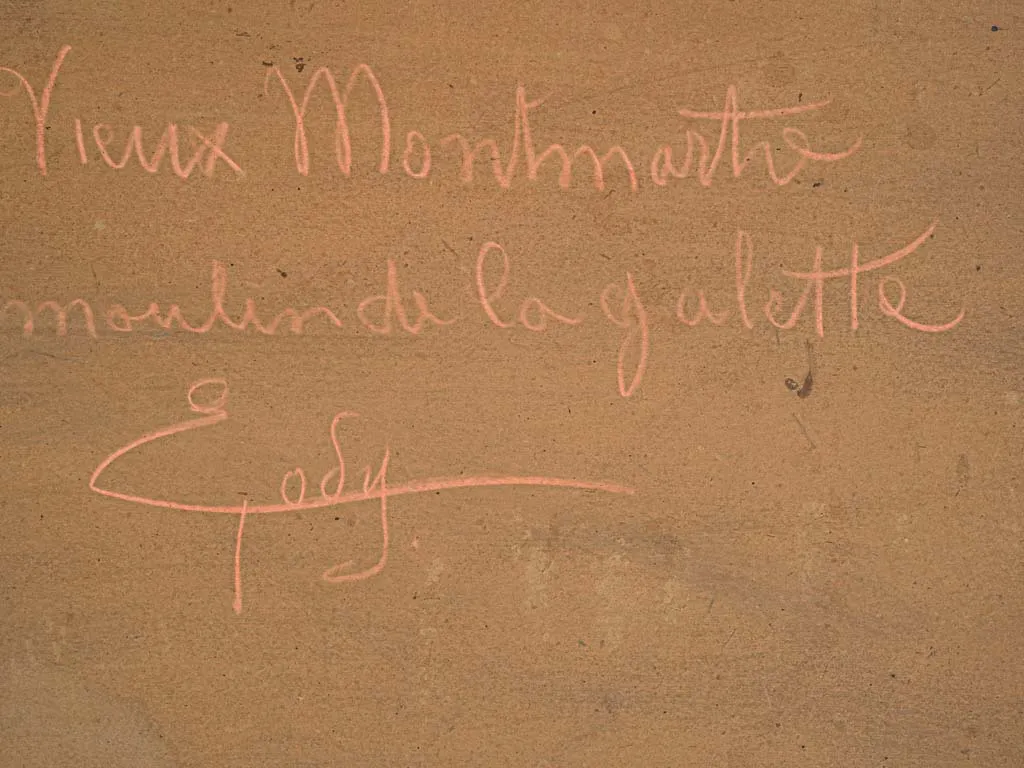 Vieux Montmartre
moulin de la galette
Gody